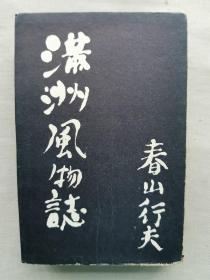 満洲風物誌
春山行夫